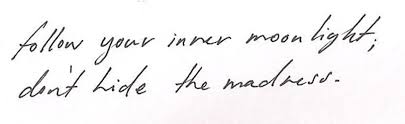 follow your inner moon light;
don't hide the madness.